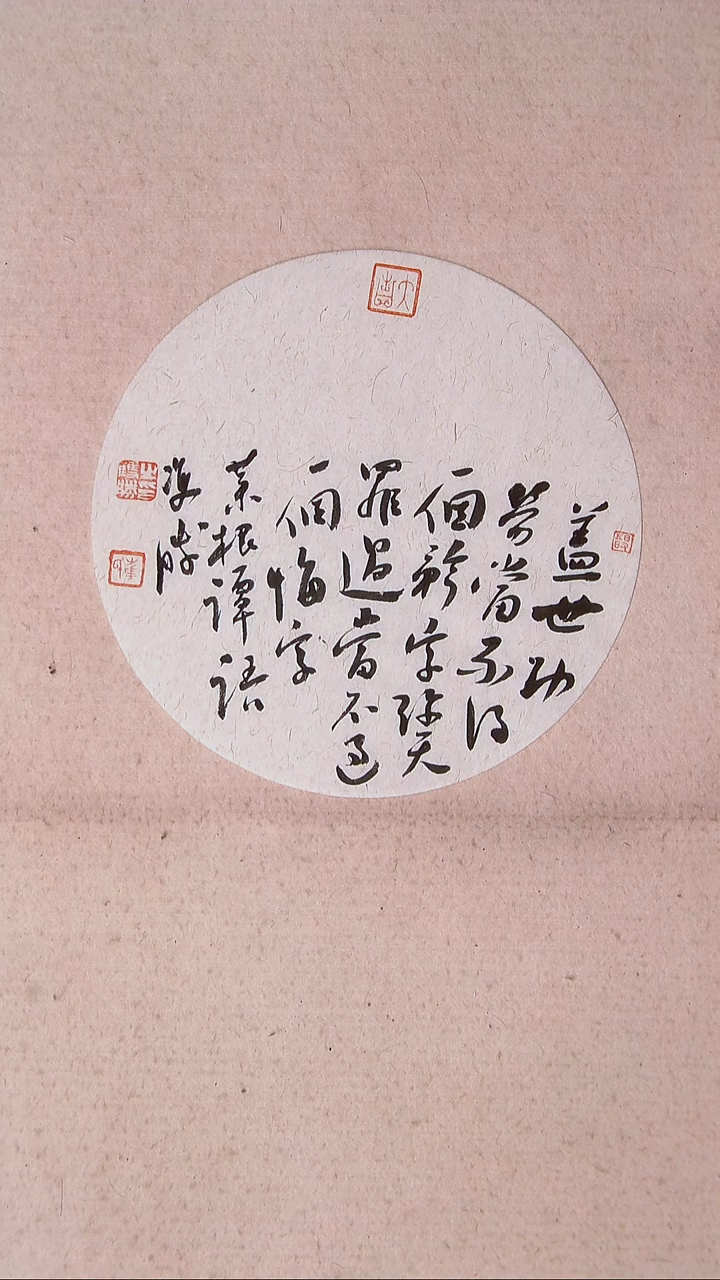 盖世功
勞當不得
一個矜字弥天
罪過當不過
一個悔字
菜根譚語